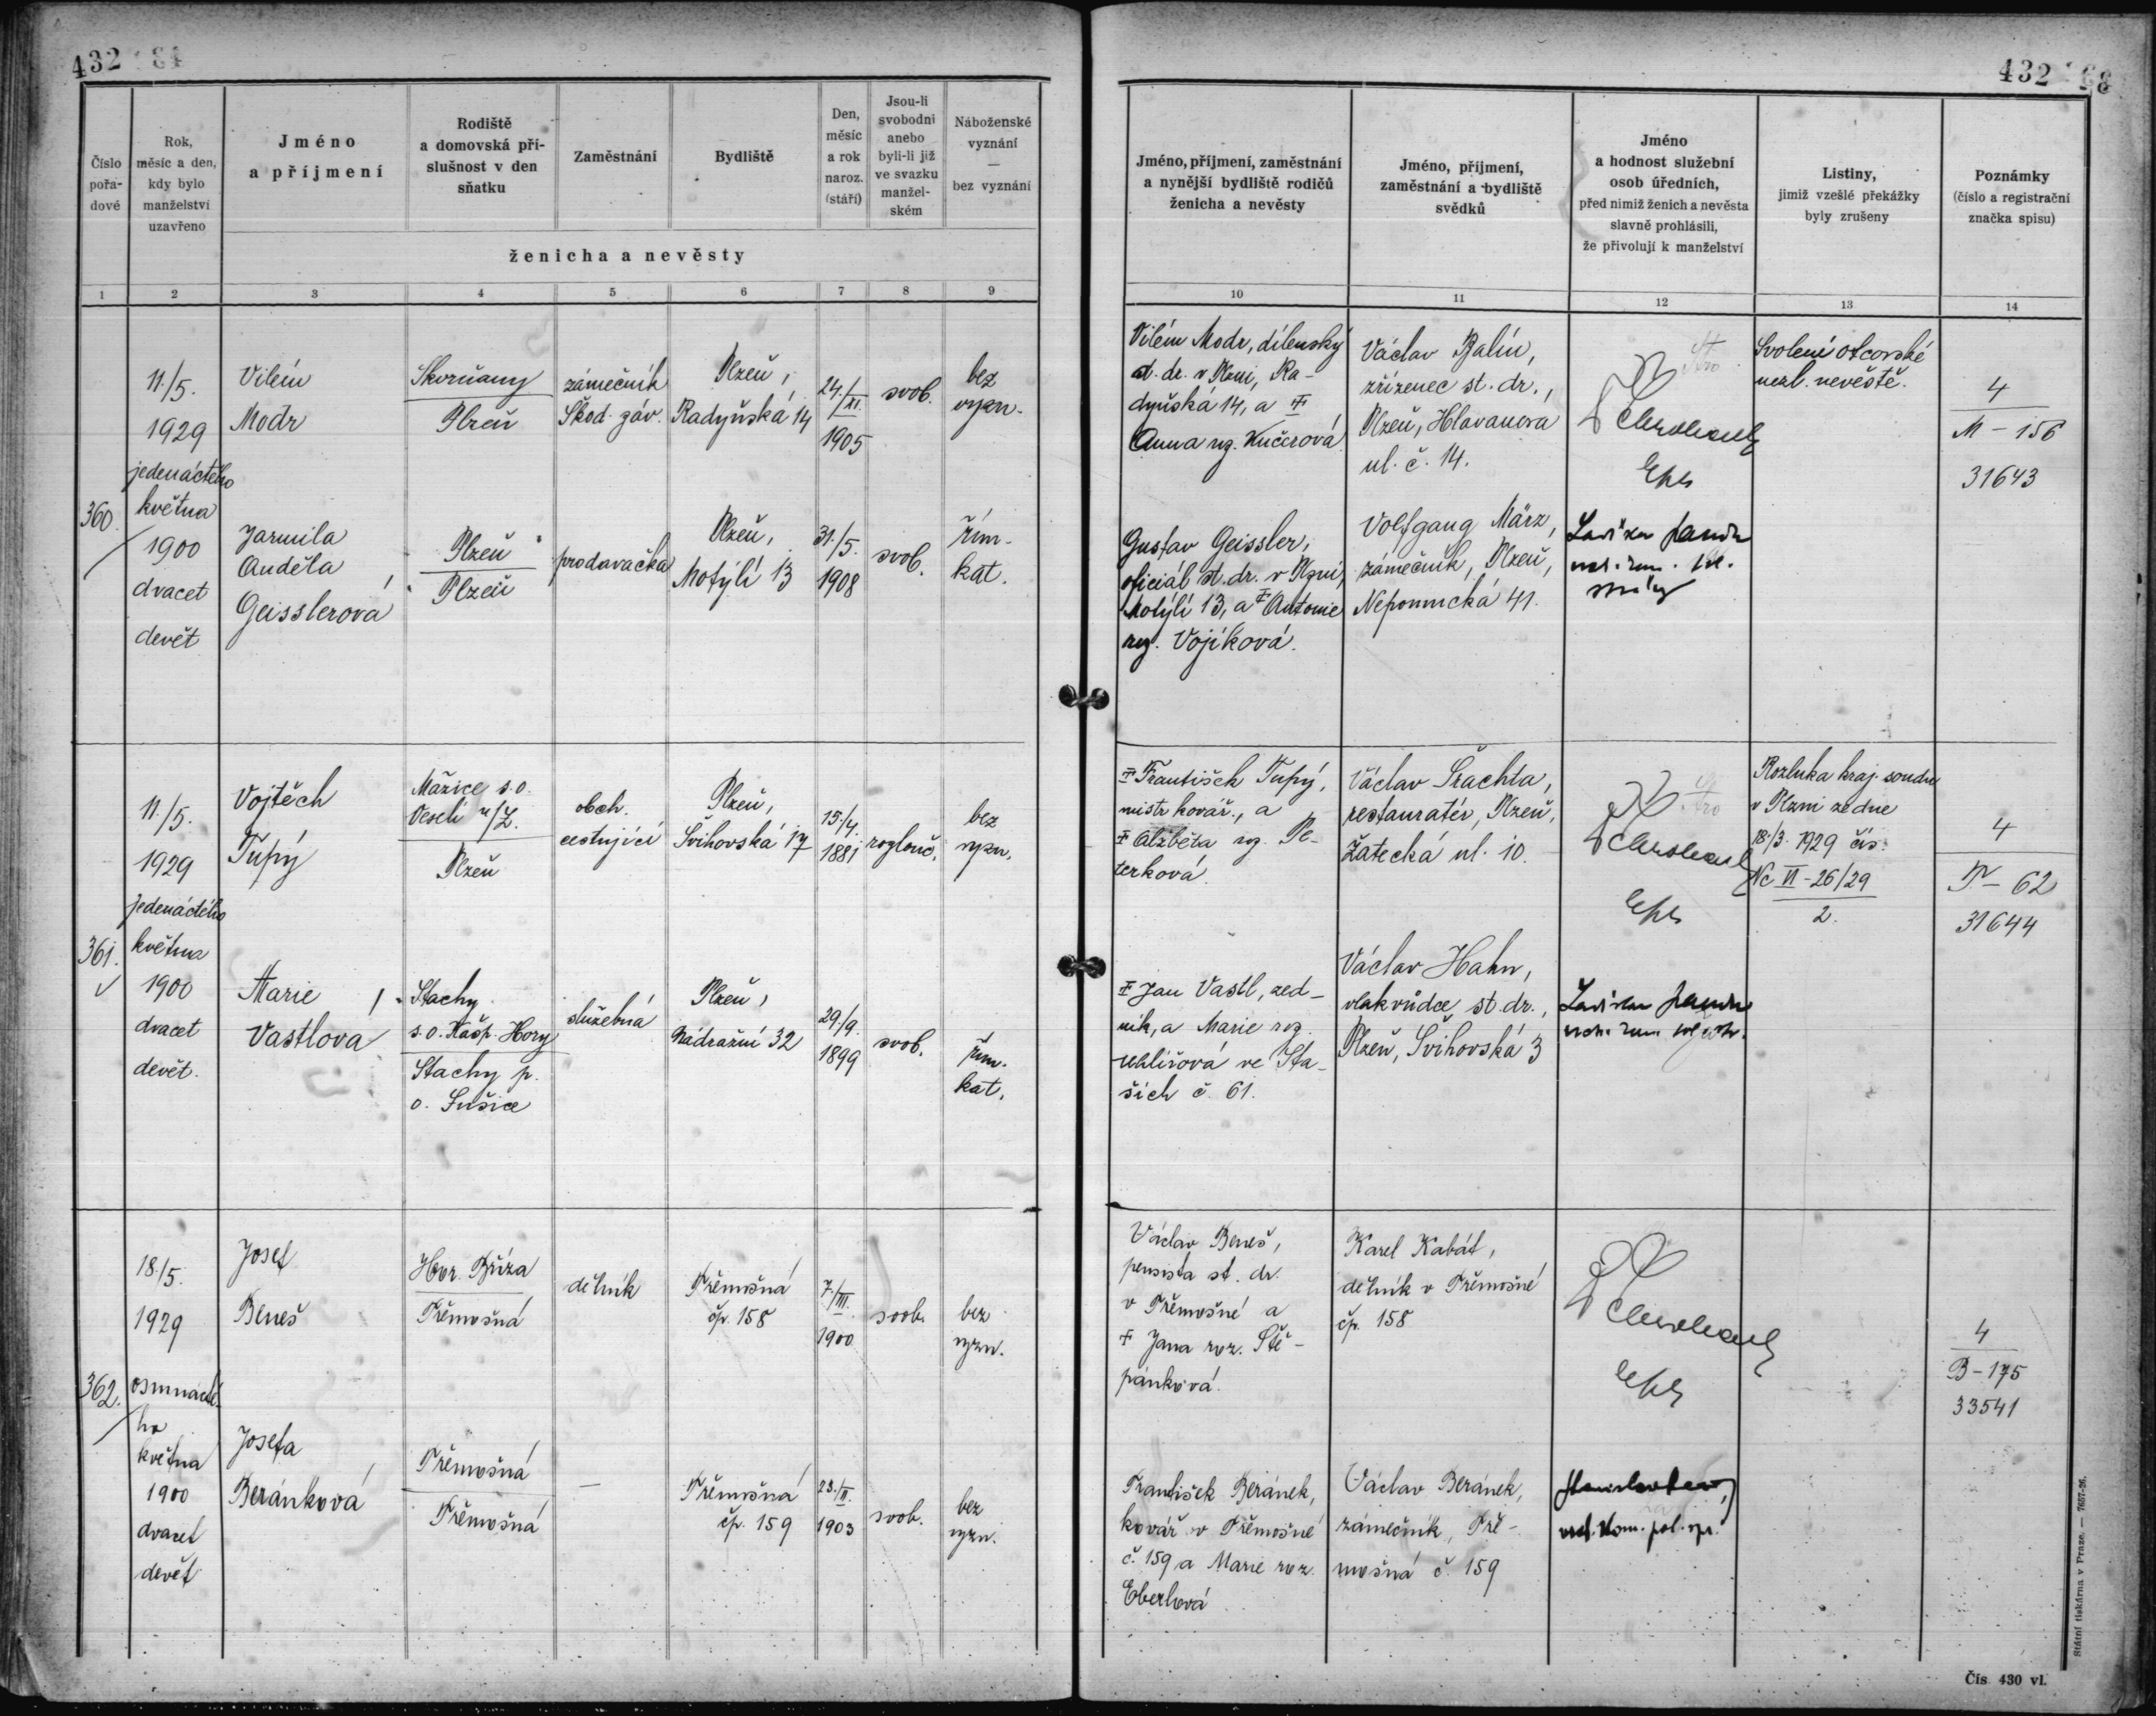 432
432
Číslo pořa-dové
Rok, měsíc a den, kdy bylo manželství uzavřeno
Jméno a příjmení
Rodiště a domovská pří-slušnost v den sňatku
Zaměstnání
Bydliště
Den, měsíc a rok naroz. (stáří)
Jsou-li svobodni anebo byli-li již ve svazku manžel-ském
Náboženské vyznání — bez vyznání
ženicha a nevěsty
Jméno, příjmení, zaměstnání a nynější bydliště rodičů ženicha a nevěsty
Jméno, příjmení, zaměstnání a bydliště svědků
Jméno a hodnost služební osob úředních, před nimiž ženich a nevěsta slavně prohlásili, že přivolují k manželství
Listiny, jimiž vzešlé překážky byly zrušeny
Poznámky (číslo a registrační značka spisu)
1 2 3 4 5 6 7 8 9 10 11 12 13 14
360.
11./5.
1929
jedenáctého
května
1900
dvacet
devět
Vilém
Modr
Skvrňany
Plzeň
zámečník
Škod. záv.
Plzeň,
Radyňská 14
24./XI.
1905
svob.
bez
vyzn.
Vilém Modr, dílenský
st. dr. v Plzni, Ra-
dyňská 14, a
Anna roz. Kučerová
Václav Balín,
zřízenec st. dr.,
Plzeň, Hlavanova
ul. č. 14.
Svolení otcovské
nezl. nevěstě.
4
M - 156
31643
Jarmila
Anděla
Geisslerová
Plzeň
Plzeň
prodavačka
Plzeň,
Motýlí 13
31./5.
1908
svob.
řím.
kat.
Gustav Geissler,
oficiál st. dr. v Plzni,
Motýlí 13, a Antonie
roz. Vojíková.
Volfgang März,
zámečník, Plzeň,
Nepomucká 41.
361.
11./5.
1929
jedenáctého
května
1900
dvacet
devět.
Vojtěch
Tupý
Mažice s.o.
Veselí n/L.
Plzeň
obch.
cestující
Plzeň,
Švihovská 17
15./4.
1881
rozlouč.
bez
vyzn.
František Tupý,
mistr kovář., a
Alžběta roz. Pe-
terková.
Václav Šrachta,
restauratér, Plzeň,
Žatecká ul. 10.
Rozluka kraj. soudu
v Plzni ze dne
18./3. 1929 čís.
Nc VI - 26/29
2.
4
T - 62
31644
Marie
Vastlová
Stachy
s.o. Kašp. Hory
Stachy p.
o. Sušice
služebná
Plzeň,
Nádražní 32
29/9.
1899
svob.
řím.
kat.
Jan Vastl, zed-
ník, a Marie roz.
ve Sta-
ších č. 61.
Václav Hahn,
vlakvůdce st. dr.,
Plzeň, Švihovská 3
362.
18./5.
1929
osmnácté-
ho
května
1900
dvacet
devět
Josef
Beneš
Hor. Bříza
Třemošná
dělník
Třemošná
čp. 158
7./III.
1900
svob.
bez
vyzn.
Václav Beneš,
pensista st. dr.
v Třemošné a
Jana roz. Ště-
pánková.
Karel Kabát,
dělník v Třemošné
čp. 158
4
B - 175
33541
Josefa
Beránková
Třemošná
Třemošná
—
Třemošná
čp. 159
23./II.
1903
svob.
bez
vyzn.
František Beránek,
kovář v Třemošné
č. 159 a Marie roz.
Eberlová
Václav Beránek,
zámečník, Tře-
mošná č. 159
vrch. kom. pol. spr.
Státní tiskárna v Praze. — 7657-26.
Čís 430 vl.